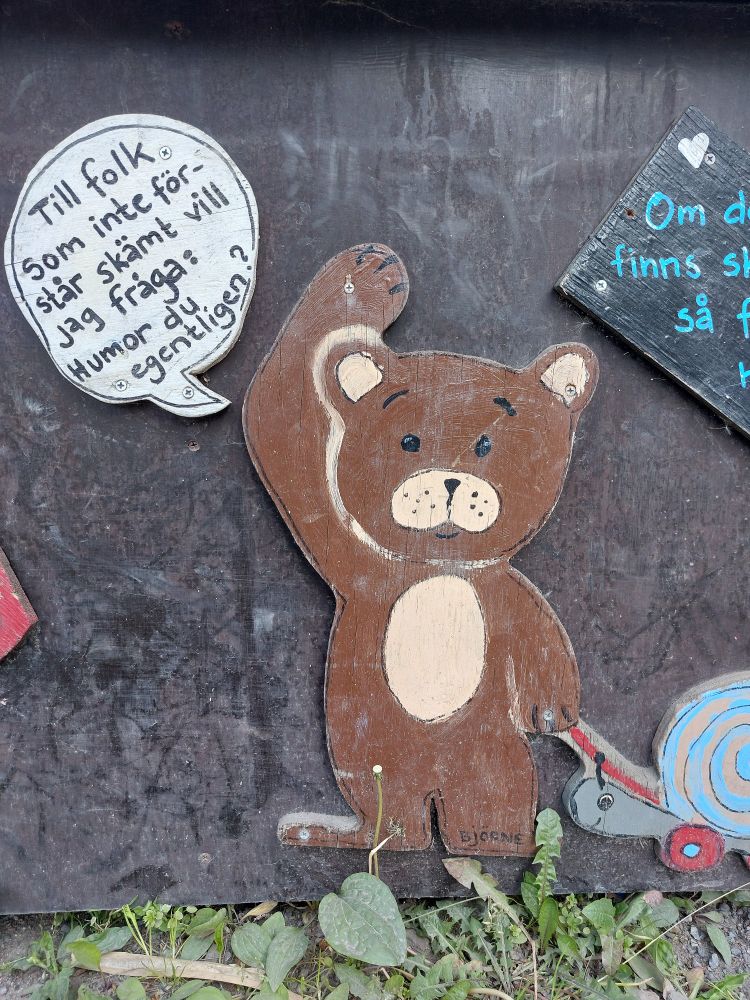 Till folk
som inte för-
står skämt vill
jag fråga:
Humor du
egentligen?
Om
finns
så
BJÖRNE